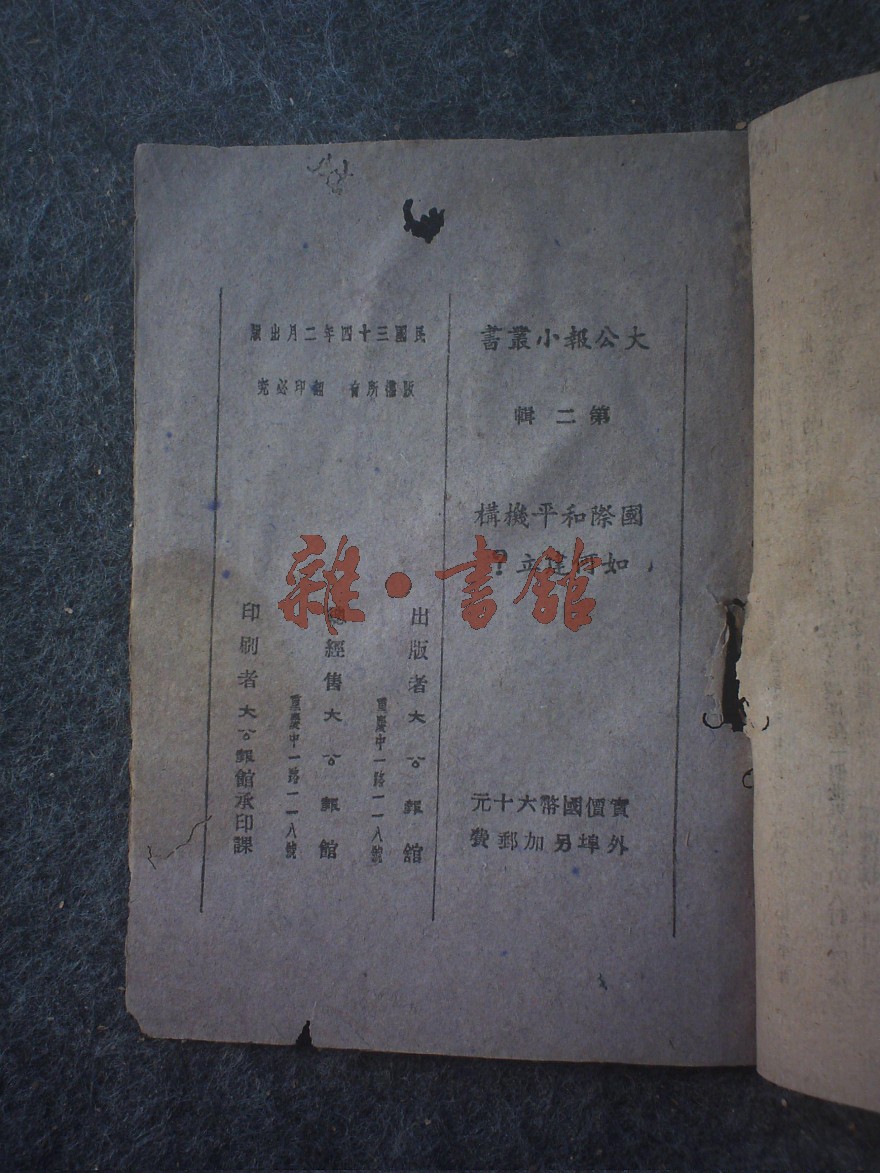 大公報小叢書
第二輯
國際和平機構
如何建立?
實價國幣六十元
外埠另加郵費
民國三十四年二月出版
版權所有 翻印必究
出版者大公報館
重慶中一路一一八號
總經售大公報館
重慶中一路一一八號
印刷者大公報館承印課
雜·書館